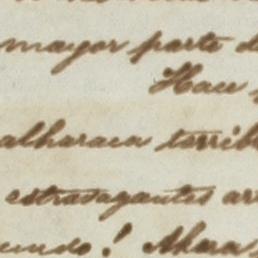 mayor parte d
Hace
alharaca terrib
estravagantes ar
undo! Ahora